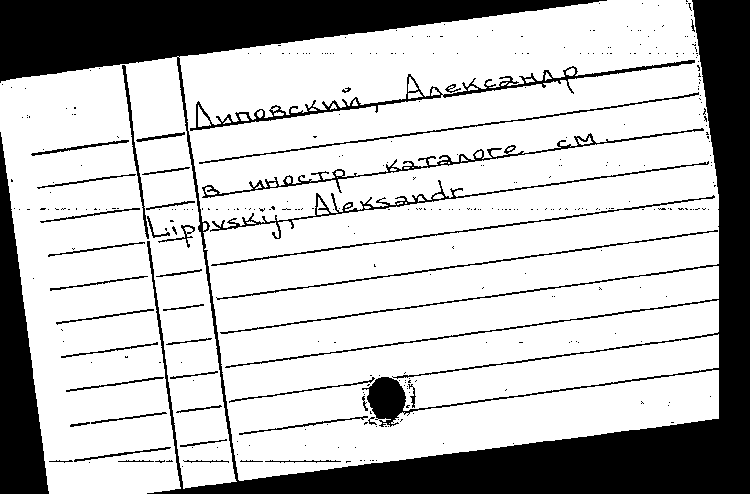 Липовский, Александр
в иностр. каталоге см.
Lipovskij, Aleksandr